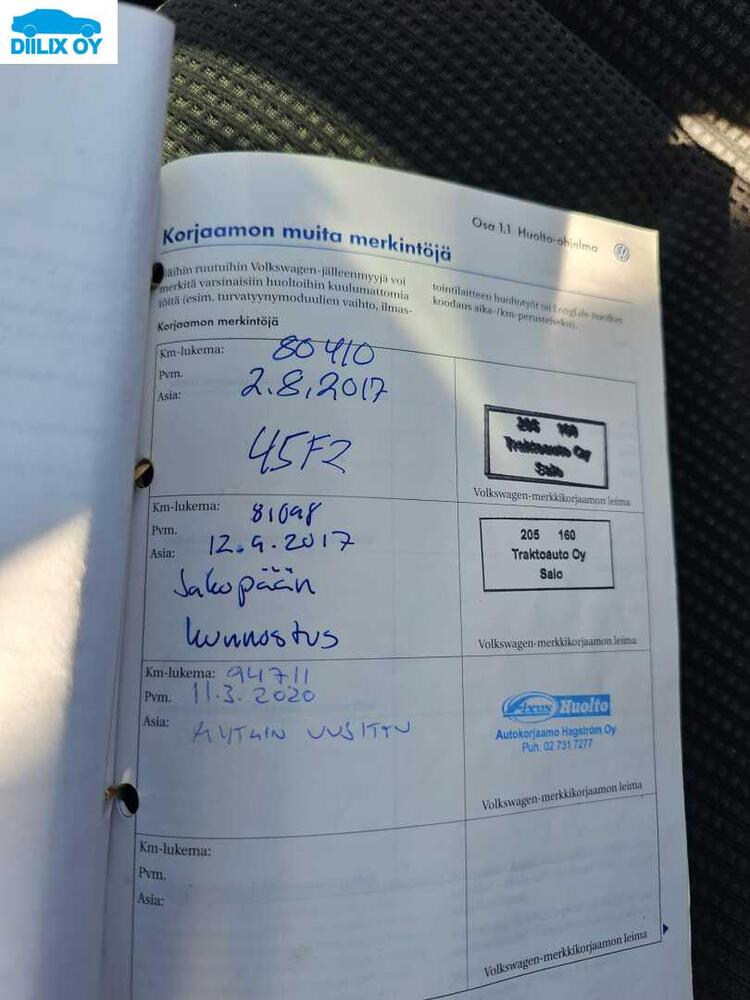 DIILIX OY
Osa 1.1 Huolto-ohjelma
Korjaamon muita merkintöjä
Näihin ruutuihin Volkswagen-jälleenmyyjä voi
merkitä varsinaisiin huoltoihin kuulumattomia
töitä (esim. turvatyynymoduulien vaihto, ilmas-
tointilaitteen huoltotyöt tai LongLife-huollon
koodaus aika-/km-perusteiseksi).
Korjaamon merkintöjä
Km-lukema: 80410
Pvm. 2.8.2017
Asia:
45F2
205 160
Traktoauto Oy
Salo
Volkswagen-merkkikorjaamon leima
Km-lukema: 81098
Pvm. 12.9.2017
Asia:
Jakopään
kunnostus
205 160
Traktoauto Oy
Salo
Volkswagen-merkkikorjaamon leima
Km-lukema: 94711
Pvm. 11.3.2020
Asia: UUSITTU
Fixus Huolto
Autokorjaamo Hagström Oy
Puh. 02 731 7277
Volkswagen-merkkikorjaamon leima
Km-lukema:
Pvm.
Asia:
Volkswagen-merkkikorjaamon leima